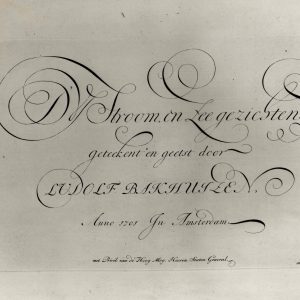 D'Y Stroom, en Zee gezichten
geteekent en geetst door
LUDOLF BAKHUIZEN,
Anno 1701 In Amsterdam
met Previl: van de Hoog: Mog: Heeren Staten Generael.